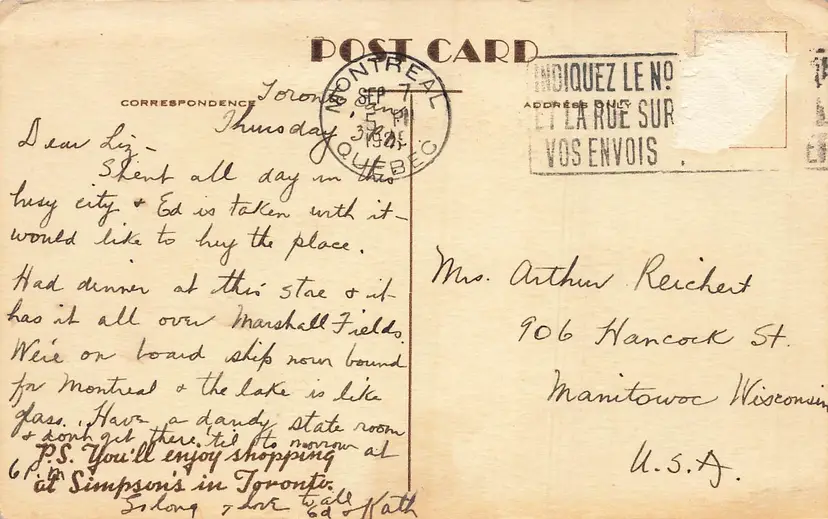 POST CARD
CORRESPONDENCE
ADDRESS ONLY
MONTREAL
SEP 7
5 PM
QUEBEC
INDIQUEZ LE NO
ET LA RUE SUR
VOS ENVOIS
Toronto
Thursday
Dear Liz -
Spent all day in this
busy city & Ed is taken with it -
would like to buy the place.
Had dinner at this store & it
has it all over Marshall Fields.
We're on board ship now bound
for Montreal & the lake is like
glass. Have a dandy state room
& don't get there 'til to morrow at
6 P.M.
P.S. You'll enjoy shopping
at Simpson's in Toronto.
So long & love to all
Ed & Kath
Mrs. Arthur Reichert
906 Hancock St.
Manitowoc Wisconsin
U.S.A.